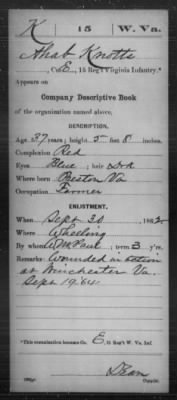 K 15 W. Va.
Ahab Knotts
, Co. E, 15 Reg't Virginia Infantry.*
Appears on
Company Descriptive Book
of the organization named above.
DESCRIPTION.
Age 37 years; height 5 feet 8 inches.
Complexion Red
Eyes Blue ; hair Drk
Where born Preston Va
Occupation Farmer
ENLISTMENT.
When Sept 30 , 1862.
Where Wheeling
By whom ; term 3 y'rs.
Remarks: Wounded in action
at Winchester Va.
Sept 19. 64.
*This organization became Co. E, 15 Reg't W. Va. Inf.
Dean
Copyist.